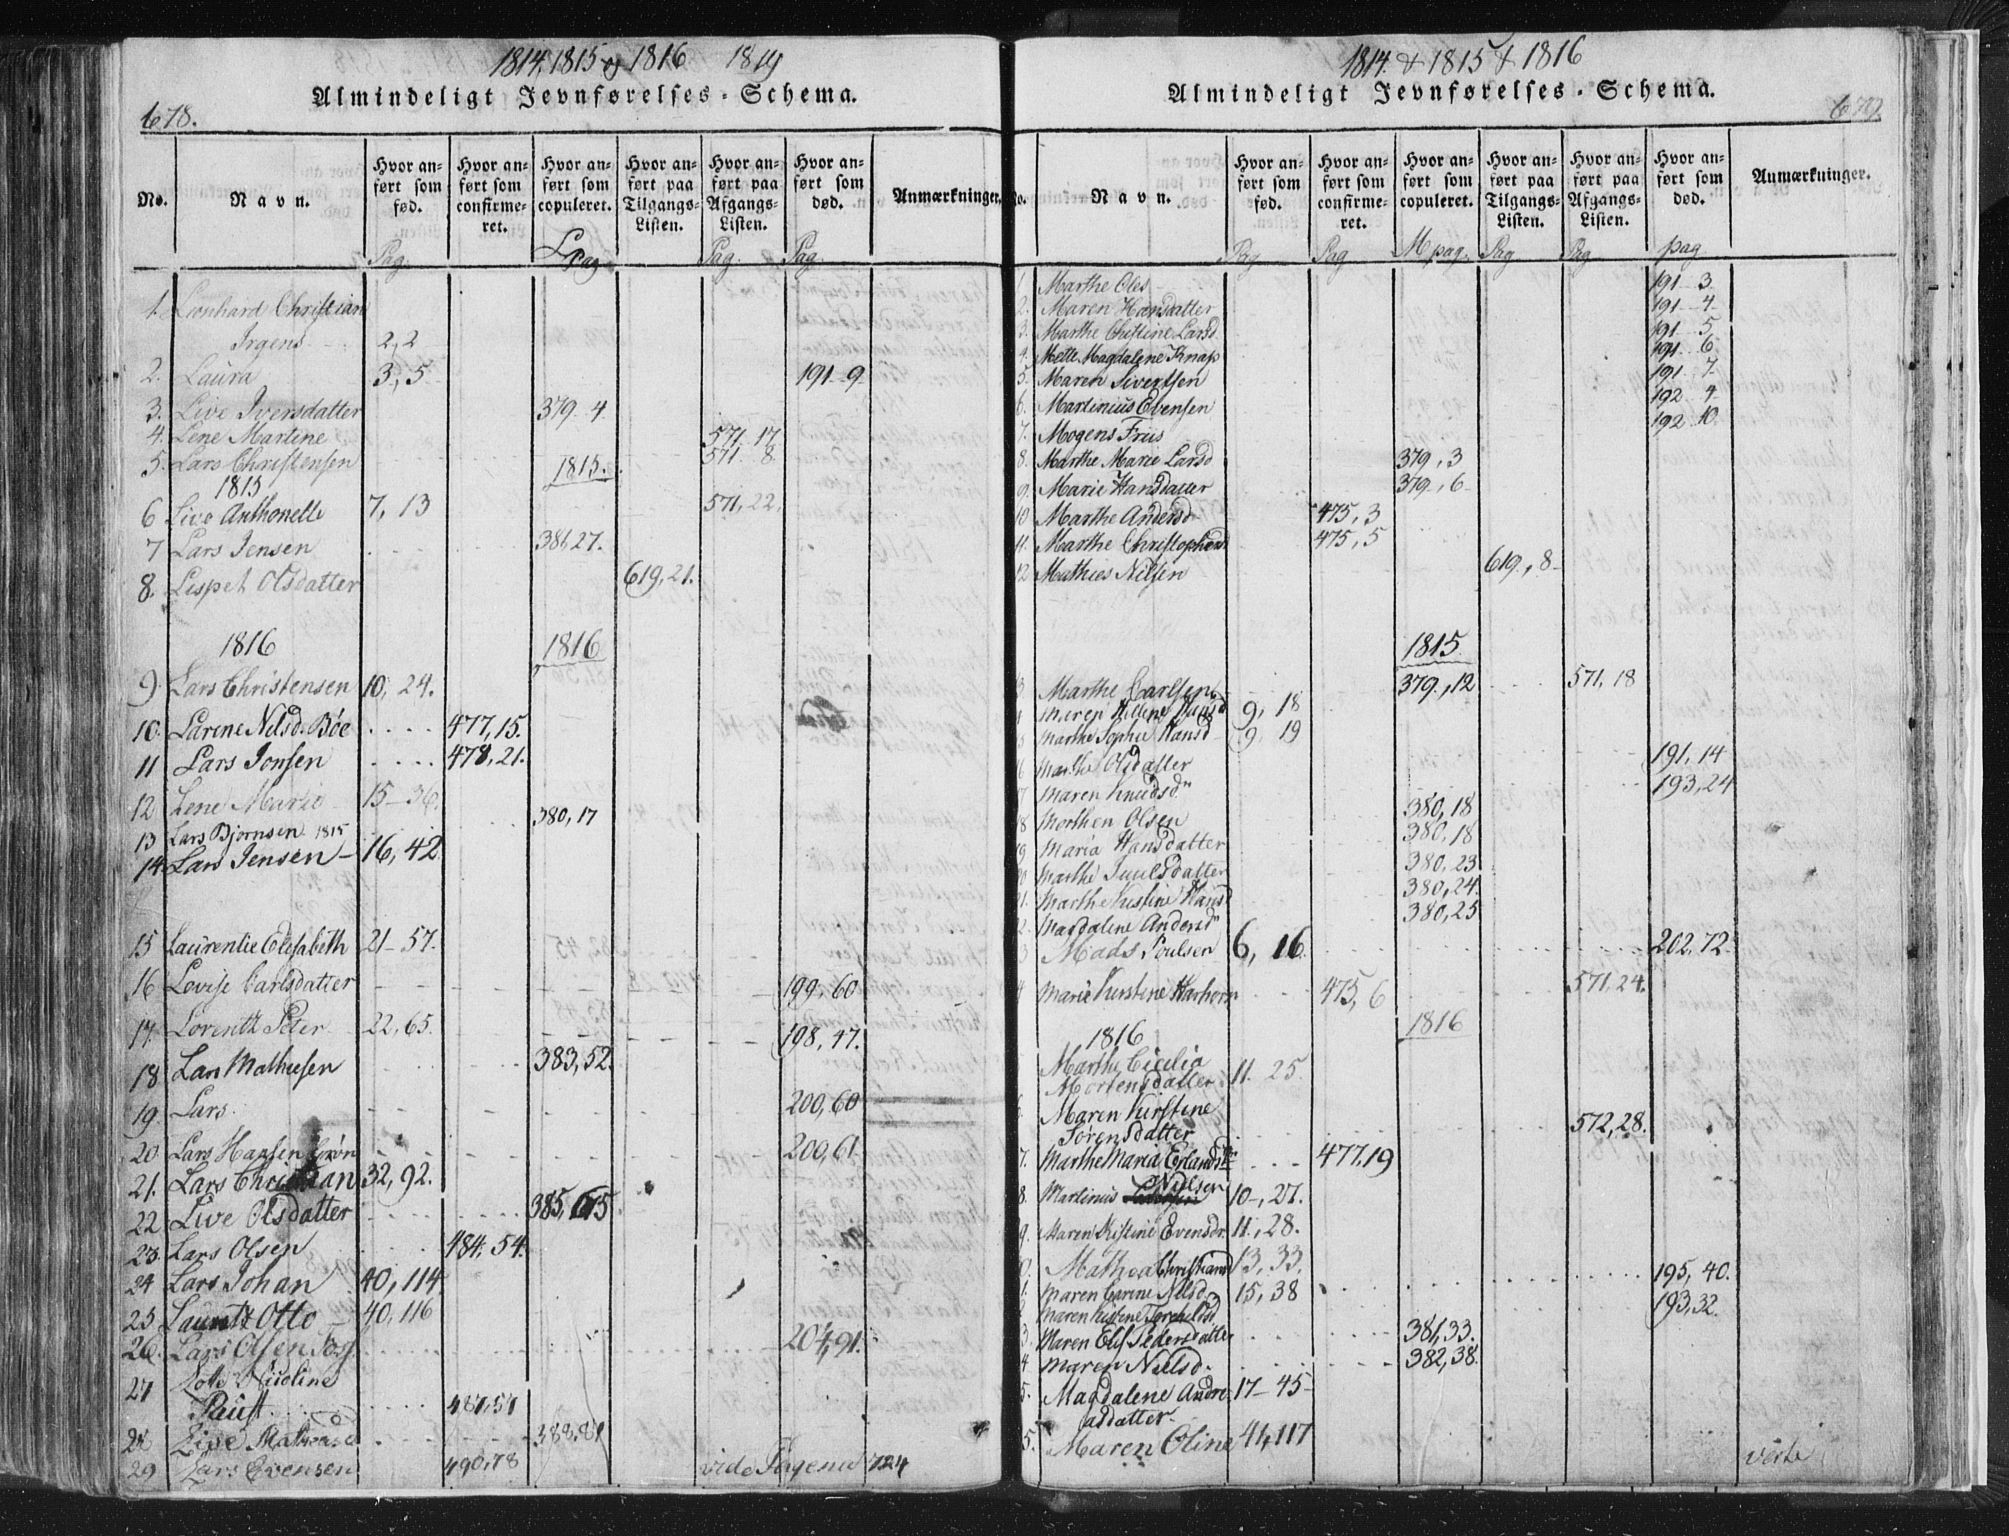 1814, 1815 og 1816 1819
Almindeligt Jevnførelses-Schema.
678.
No.
Navn.
Hvor anført som fød.
Hvor anført som confirmeret.
Hvor anført som copuleret.
Hvor anført paa Tilgangs-Listen.
Hvor anført paa Afgangs-Listen.
Hvor anført som død.
Anmærkninger.
Pag. L Pag Pag. Pag
1. Leonhard Christian
Irgens 2,2
2. Laura 3,5 191-9
3. Live Iversdatter 379-4.
4. Lene Martine 571-17
5. Lars Christensen 571-8
1815 1815.
6 Live Anthonette 7, 13 571,22.
7 Lars Jensen 381,27.
8. Lispet Olsdatter 619,21.
1816 1816
9. Lars Christensen 10, 24.
10. Larene Nilsd. Böe 477,15.
11 Lars Jonsen 478,21.
12 Lene Marie 15-36.
13 Lars Bjørnsen 1815 380,17
14. Lars Jensen 16,42
15 Laurentie Elisabeth 21-57.
16 Lovise Carlsdatter 199,60
17. Lorentz Peter 22,65. 198,47.
18 Lars Mathiesen 383,52.
19. Lars. 200,60
20 Lars Hansen Grøn 200,61
21. Lars Christian 32,92.
22 Live Olsdatter 385,65
23. Lars Olsen 484.54.
24 Lars Johan 40,114
25 Lauritz Otto 40,116
26. Lars Olsen 204,91.
27 Nicoline
Paust 487,57
28 Live 388,81
29 Lars Evensen 490,78 vide Pagena 724
1814. & 1815 & 1816
Almindeligt Jevnførelses-Schema.
679.
No.
Navn.
Hvor anført som fød.
Hvor anført som confirmeret.
Hvor anført som copuleret.
Hvor anført paa Tilgangs-Listen.
Hvor anført paa Afgangs-Listen.
Hvor anført som død.
Anmærkninger.
Pag Pag M pag. Pag Pag pag
1. Marthe Ols 191-3
2. Maren Hansdatter 191-4
3. Marthe Christine Larsd 191-5
4. Mette Magdalene Knap 191-6
5. Maren Sivertsen 191-7
6. Martinius Evensen 192-4
7. Mogens Friis 192-10.
8. Marthe Marie Larsd 379,3
9. Marie Hansdatter 379,6
10 Marthe Andersd 475,3
11. Marthe Christophersd 475,5
12 Mathies Nilsen 619,8
1815
3 Marthe Carlsen 379,12 571,18
Maren Hellene Hansd 9, 18
Marthe Sophie Hansd 9, 19
6 Marthe Olsdatter 191,14
7 Maren Knudsd 193,24
8 Morthen Olsen 380,18
9 Maria Hansdatter 380,18
Marthe Juulsdatter 380,23
1. Marthe Kirstine Hansd 380,24.
2. Magdalene Andersd 380,25
3 Mads Poulsen 6, 16 202,72.
4 Marie Kirstine 475,6 571,24.
1816 1816
Marthe Cicilia
Mortensdatter 11. 25.
Maren Kirstine
Sørensdatter 572,28.
7. Marthe Maria Erlandsd 477,19
Nielsen
8. Martinus 10-,27.
9. Maren Kistine Evensdr. 11.,28.
Mathea Christiansd 13,33. 195,40.
1. Maren Carine Nilsd 15,38 193,32
2 Maren Kistene
3. Maren Elis Pedersdatter 381,33.
4 Maren Nielsd. 382,38.
5. Magdalene Andre- 17-45
asdatter.
5. Maren Oline 41,117
verte